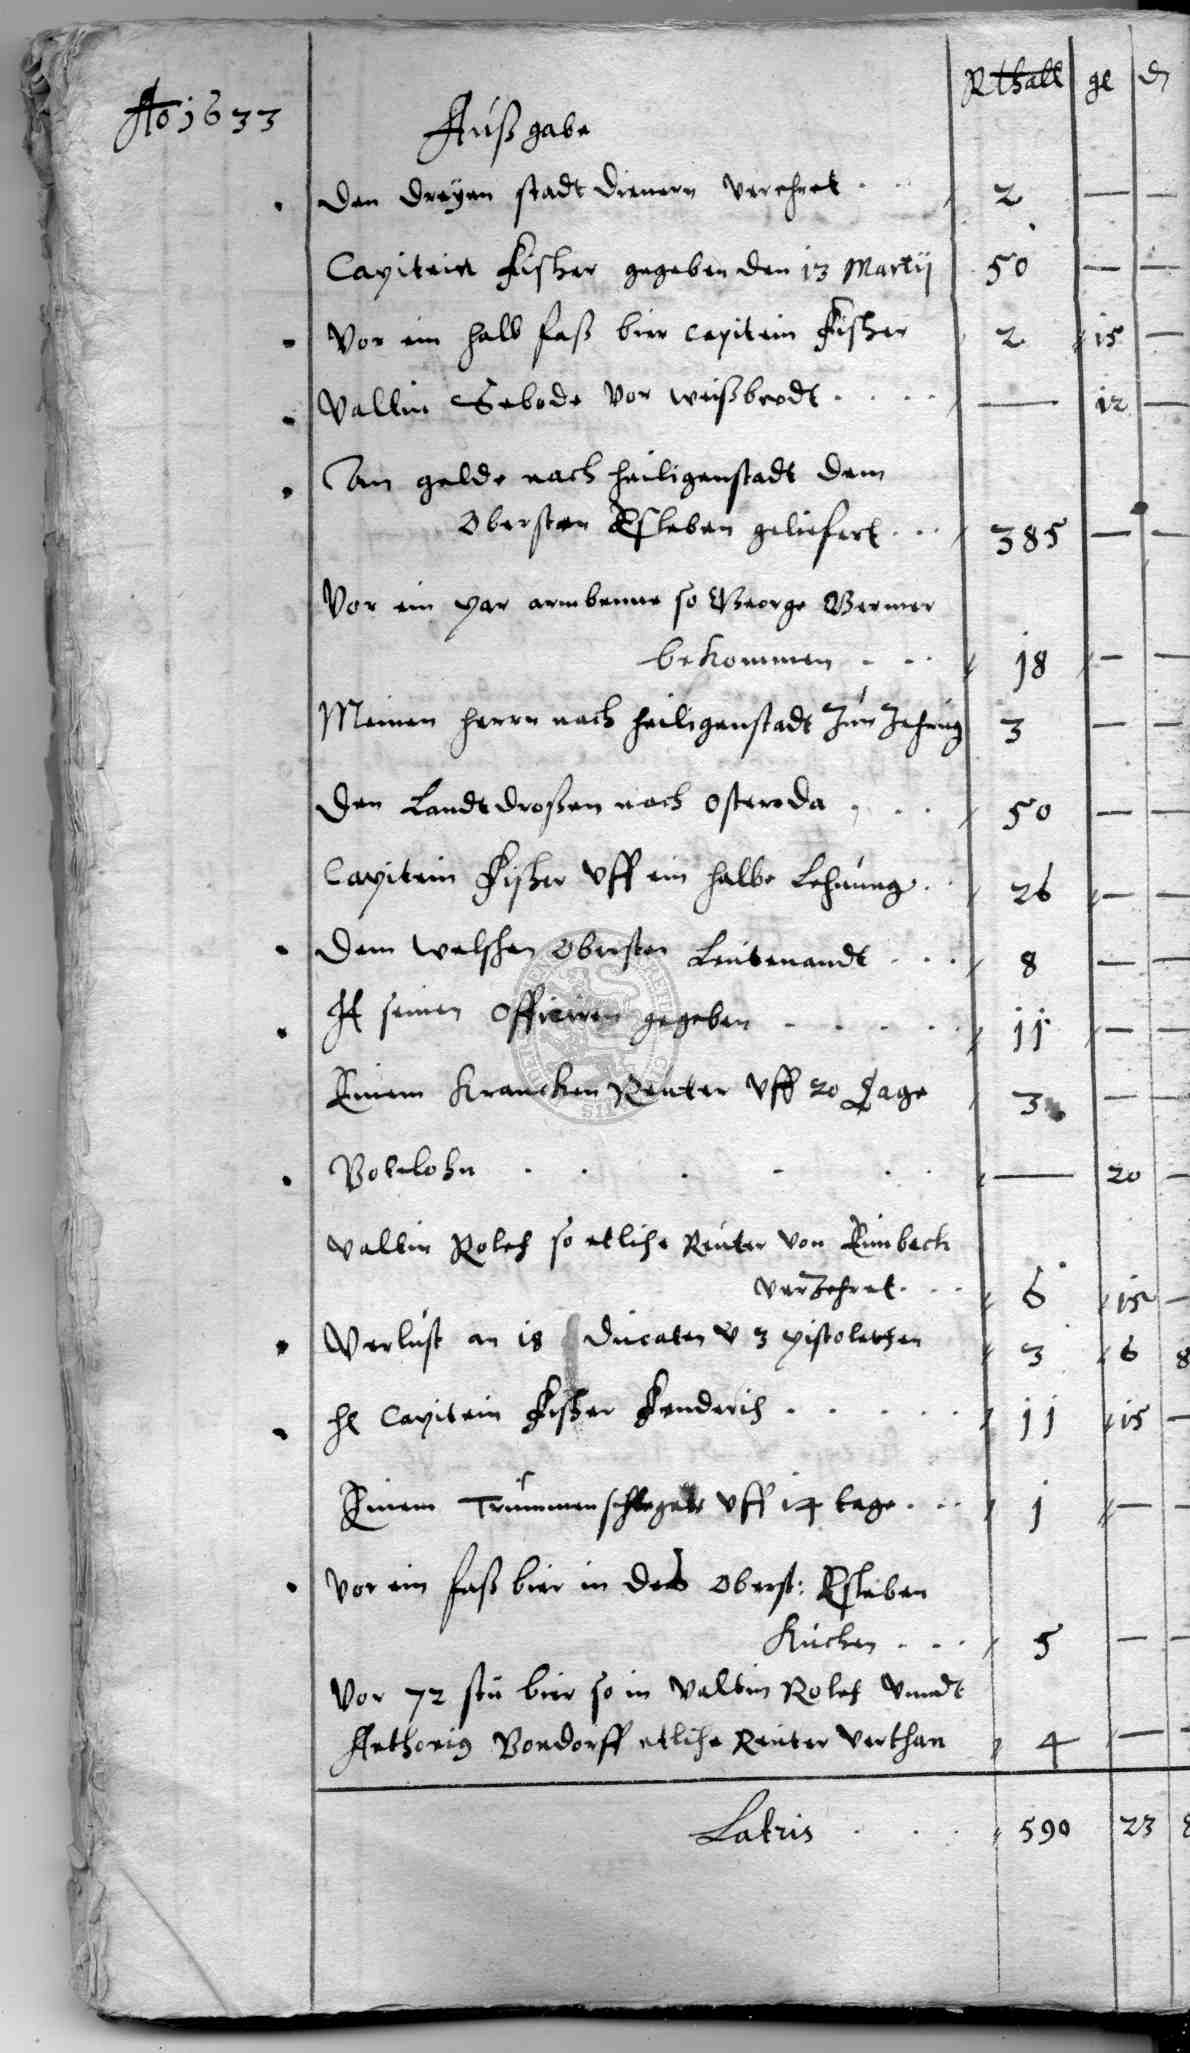 Rthall gl d
Ao 1633
Außgabe
Den dreyen stadt dienern verehret . . 2 — —
Capitein Fischer gegeben den 13 Martij 50 — —
Vor ein halb faß bier Capitein Fischer 2 15 —
Valtin Sebode vor weißbrodt . . . . — 12 —
An gelde nach heiligenstadt dem
Obersten Esleben geliefert . . . 385 — —
Vor ein par so George Vermer
bekommen . . . 18 — —
Meinen herrn nach heiligenstadt Zur Zehrung 3 — —
Den Landtdroßen nach Osteroda . . . 50 — —
Capitein Fischer vff ein halbe Lehnung . . 26 — —
Dem welschen Obersten Leutenandt . . . 8 — —
It seinen Officiren gegeben . . . . . 11 — —
Einem Krancken Reuter vff 20 Tage 3 — —
Botelohn . . . . . . — 20 —
Valtin Rolef so etliche Reuter von Einbeck
verZehret . . . 6 15 —
Verlust an 18 Ducaten v 3 pistoletten 3 6 8
H Capitein Fischer Fenderich . . . . . 11 15 —
Einem Trummenschleger vff 14 tage . . . 1 — —
Vor ein faß bier in des Oberst: Esleben
Kuchen . . . 5 — —
Vor 72 stu bier so in Valtin Rolef vnndt
Anthonig Vondorff etliche Reuter verthan 4 — —
Latris . . . 590 23 8